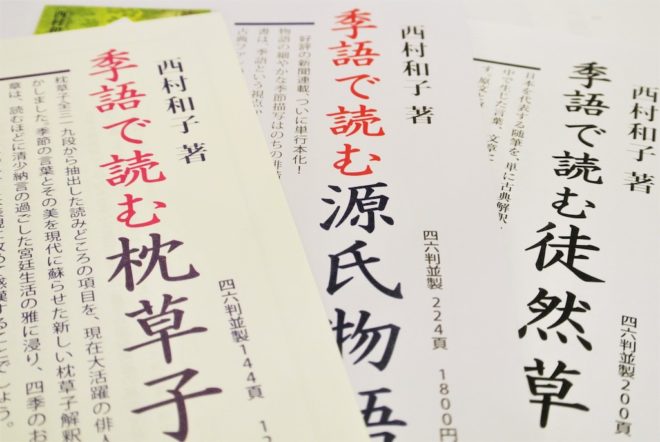 西村和子 著
四六判並製 200頁
季語で読む徒然草
日本を代表する随筆を、単に古典解釈
中で生じた言葉、文章
す。原文
西村和子 著
四六判並製 224頁 1800円
季語で読む源氏物語
好評の新聞連載、ついに単行本化!
物語の細やかな季節描写はのちの俳諧
書は、季語という視点
古典ファン
西村和子 著
四六判並製 144頁 1
季語で読む枕草子
枕草子全三一九段から抽出した読みどころの項目を、現在大活躍の俳人
かしました。季節の言葉とその美を現代に蘇らせた新しい枕草子解釈
草は、読むほどに清少納言の過ごした宮廷生活の雅に浸り、四季のお
表現に改めて感嘆することでしょう。